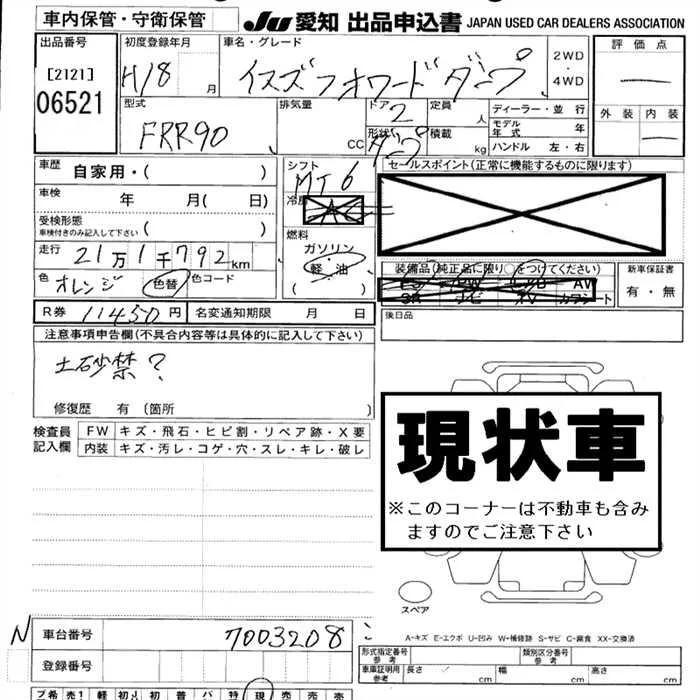 車内保管・守衛保管
JU 愛知 出品申込書 JAPAN USED CAR DEALERS ASSOCIATION
出品番号
[2121]
06521
初度登録年月
H18 月
車名・グレード
イスズフォワードダンプ
2WD
・
4WD
評価点
外装 内装
型式
FRR90
排気量
CC
ドア
2
形状
ダンプ
定員
人
積載
kg
ディーラー・並行
モデル年式 年
ハンドル 左・右
車歴 自家用・( )
車検 年 月( 日)
受検形態
車検付きのみ記入して下さい ( )
走行 21万1千792km
色 オレンジ 色替 色コード
シフト
MT6
冷房
燃料
ガソリン
軽油
( )
セールスポイント(正常に機能するものに限ります)
装備品(純正品に限り○をつけてください)
新車保証書
有・無
R券 11450円 名変通知期限 月 日
後日品
注意事項申告欄(不具合内容等は具体的に記入して下さい)
土砂禁?
修復歴 有 (箇所 )
検査員記入欄
FW キズ・飛石・ヒビ割・リペア跡・X要
内装 キズ・汚レ・コゲ・穴・スレ・キレ・破レ
現状車
※このコーナーは不動車も含み
ますのでご注意下さい
スペア
A-キズ E-エクボ U-凹み W-補修跡 S-サビ C-腐食 XX-交換済
N 車台番号 7003208
登録番号
形式指定番号
参考
類別区分番号
参考
車庫証明用
参考
長さ cm 幅 cm 高さ cm